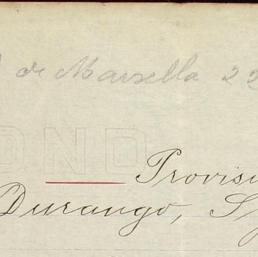 de Marsella 22
OND
Provis
Durango, S